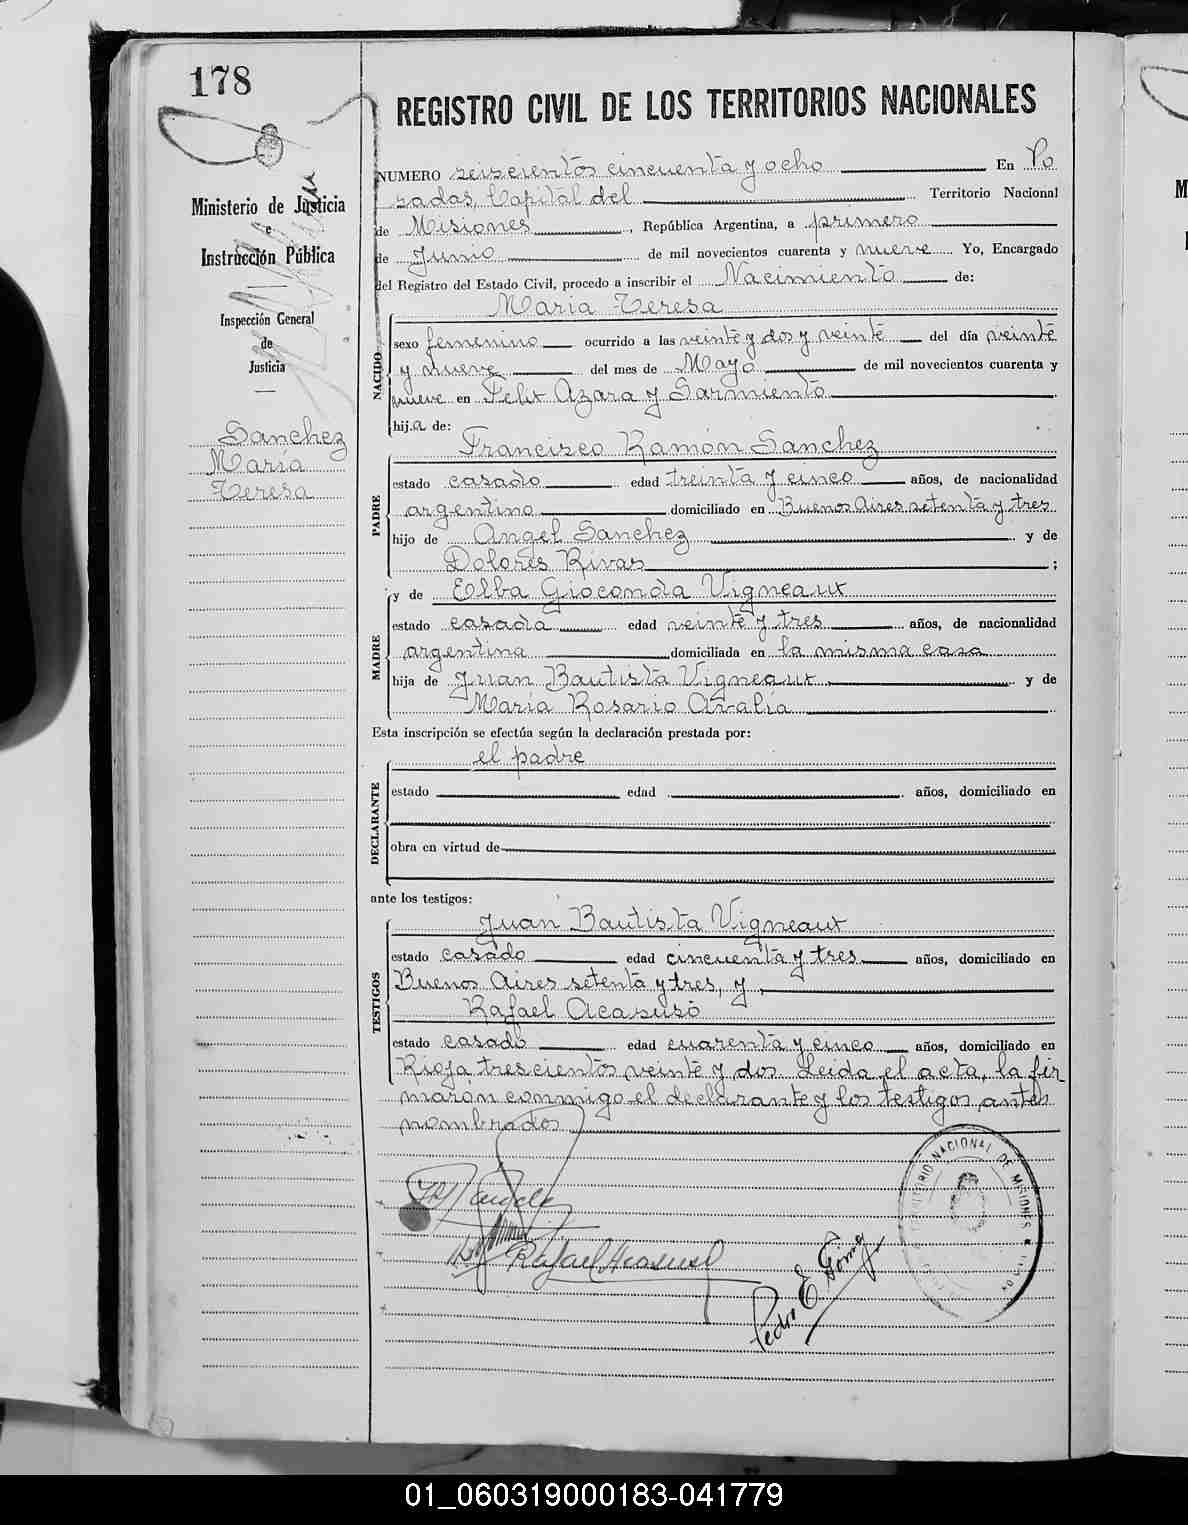 178
REGISTRO CIVIL DE LOS TERRITORIOS NACIONALES
Ministerio de Justicia
e
Instrucción Pública
Inspección General
de
Justicia
Sanchez
María
Teresa
NUMERO seiscientos cincuenta y ocho En Po
sadas, Capital del Territorio Nacional
de Misiones, República Argentina, a primero
de Junio de mil novecientos cuarenta y nueve Yo, Encargado
del Registro del Estado Civil, procedo a inscribir el Nacimiento de:
María Teresa
NACIDO
sexo femenino ocurrido a las veinte y dos y veinte del día veinte
y nueve del mes de Mayo de mil novecientos cuarenta y
nueve en Felix Azara y Sarmiento
hij.a de:
Francisco Ramón Sanchez
PADRE
estado casado edad treinta y cinco años, de nacionalidad
argentino domiciliado en Buenos Aires setenta y tres
hijo de Angel Sanchez y de
Dolores Rivas ;
y de Elba Gioconda Vigneaux
MADRE
estado casada edad veinte y tres años, de nacionalidad
argentina domiciliada en la misma casa
hija de Juan Bautista Vigneaux y de
María Rosario Avalía
Esta inscripción se efectúa según la declaración prestada por:
el padre
DECLARANTE
estado edad años, domiciliado en
obra en virtud de
ante los testigos:
Juan Bautista Vigneaux
TESTIGOS
estado casado edad cincuenta y tres años, domiciliado en
Buenos Aires setenta y tres, y
Rafael Acasuso
estado casado edad cuarenta y cinco años, domiciliado en
Rioja trescientos veinte y dos. Leida el acta, la fir
maron conmigo el declarante y los testigos antes
nombrados
Rafael Acasuso
Pedro E. Gómez
TERRITORIO NACIONAL DE MISIONES
01_060319000183-041779